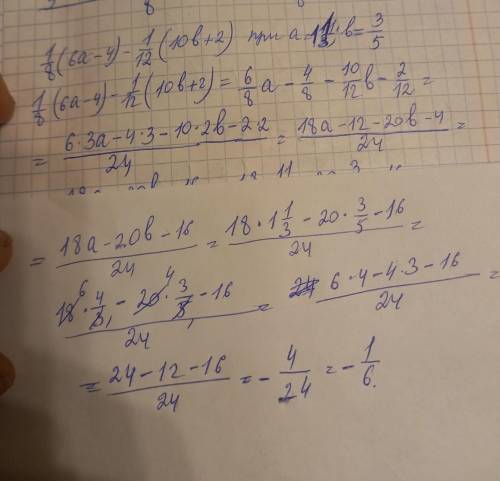 1/8(6a-4) - 1/12(10b+2) при a=1 1/3, b=3/5
1/8(6a-4) - 1/12(10b+2) = 6/8 a - 4/8 - 10/12 b - 2/12 =
= (6·3a-4·3-10·2b-2·2)/24 = (18a-12-20b-4)/24 =
= (18a-20b-16)/24 = (18·1 1/3 - 20·3/5 - 16)/24 =
(18·4/3 - 20·3/5 - 16)/24 = (6·4-4·3-16)/24 =
= (24-12-16)/24 = - 4/24 = - 1/6.